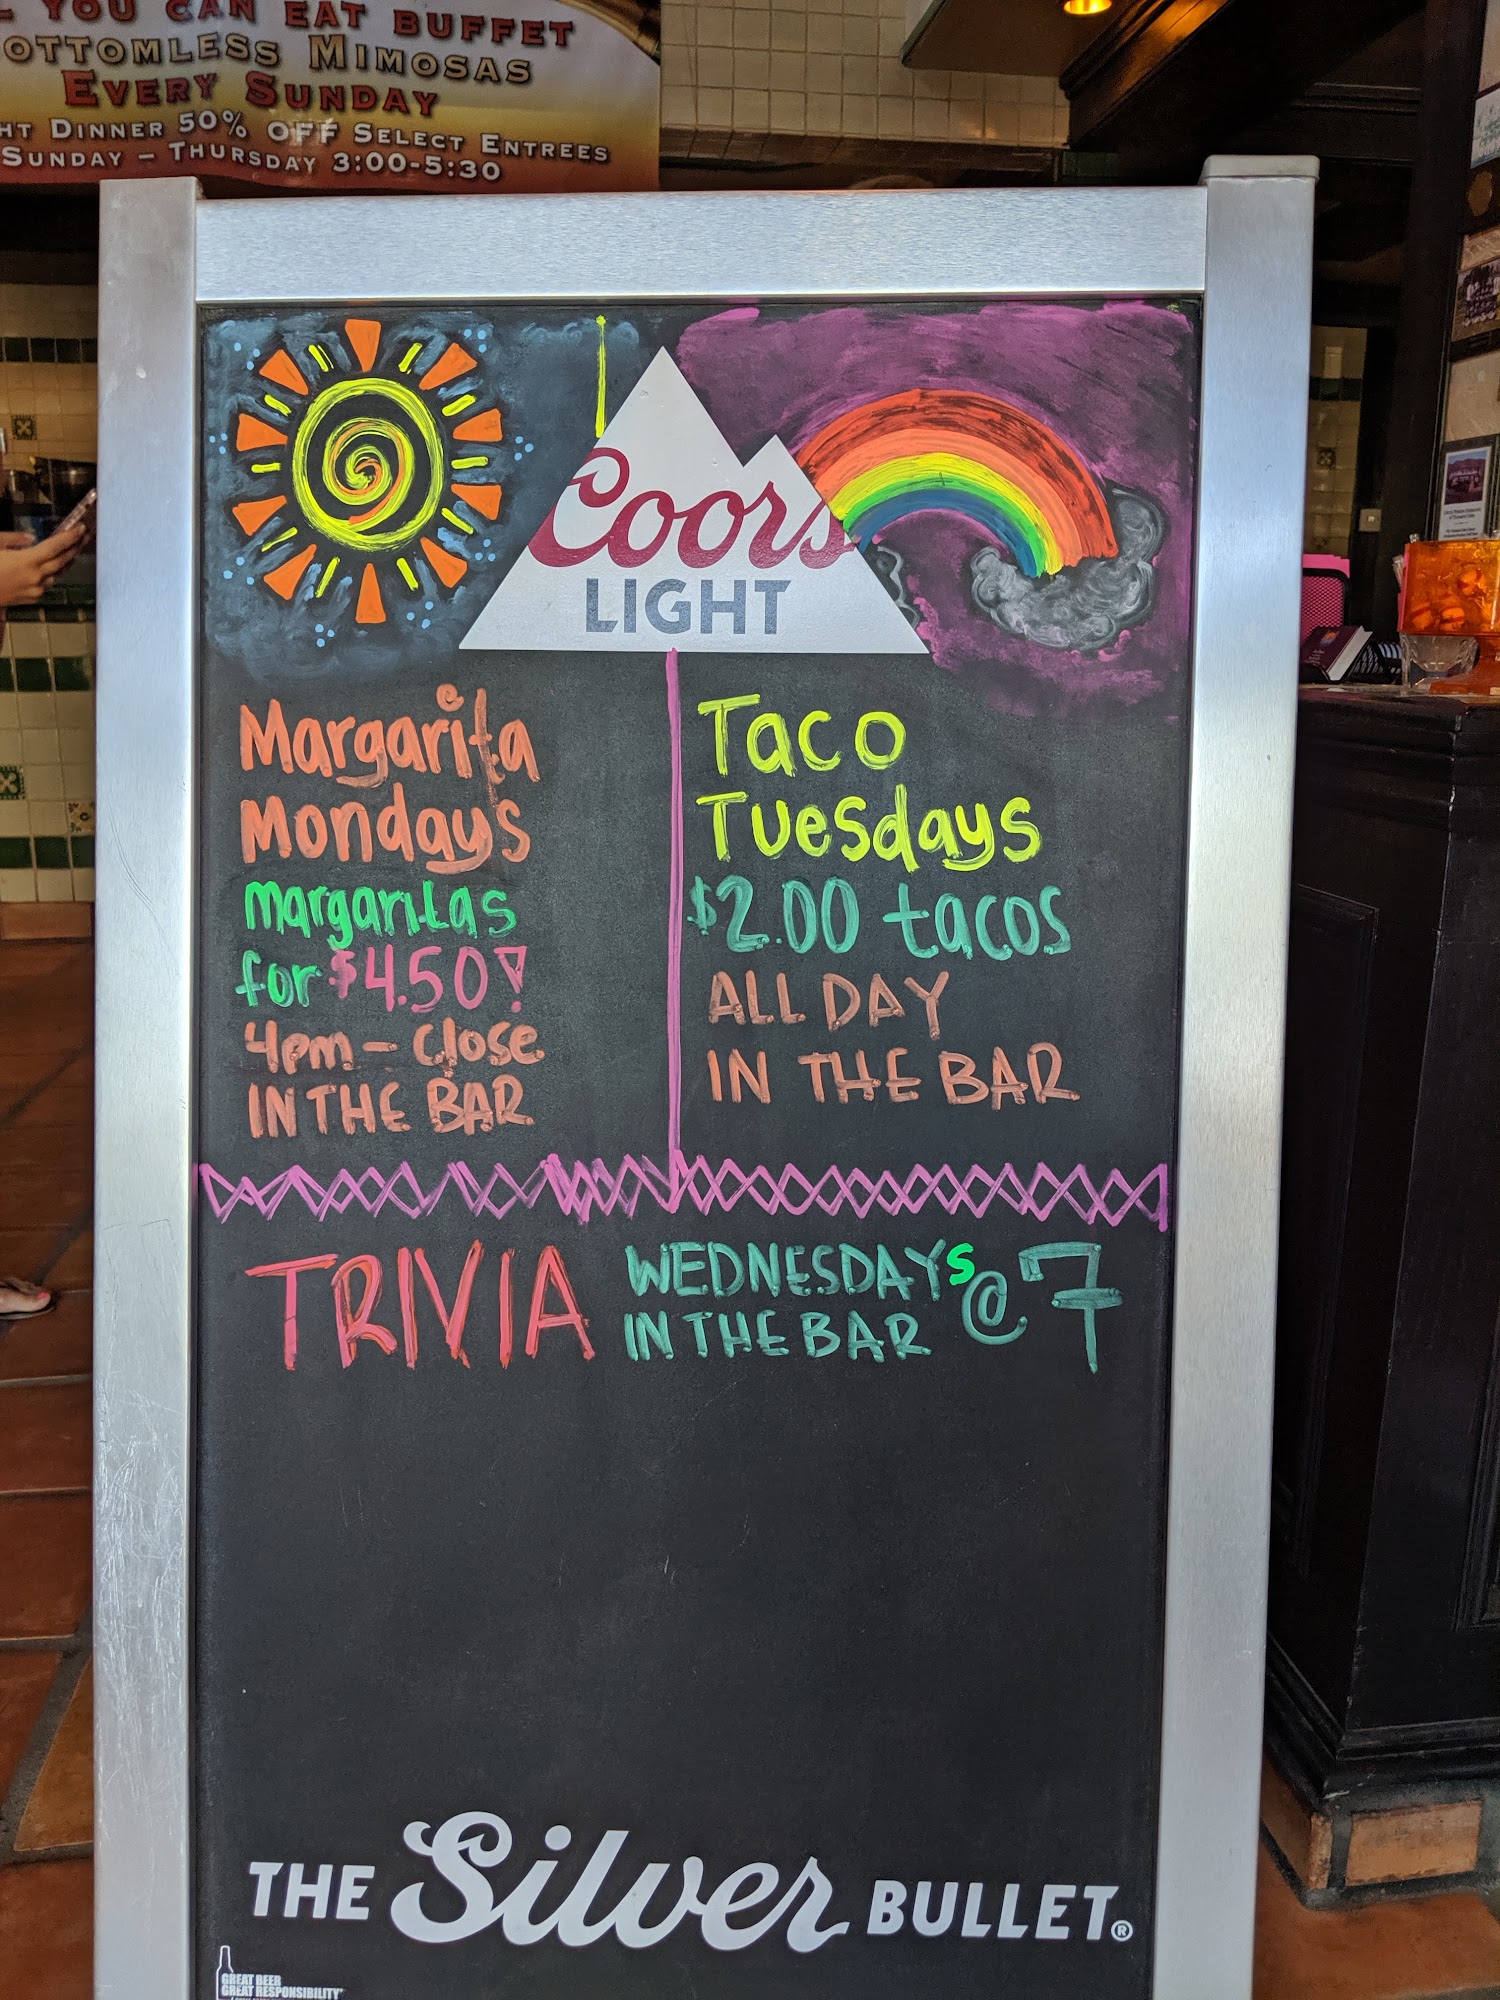 YOU CAN EAT BUFFET
OTTOMLESS MIMOSAS
EVERY SUNDAY
HT DINNER 50% OFF SELECT ENTREES
SUNDAY – THURSDAY 3:00-5:30
Coors
LIGHT
Margarita
Mondays
margaritas
for $4.50!
4pm – Close
IN THE BAR
Taco
Tuesdays
$2.00 tacos
ALL DAY
IN THE BAR
TRIVIA
WEDNESDAYS
IN THE BAR
@ 7
THE Silver BULLET®
GREAT BEER
GREAT RESPONSIBILITY